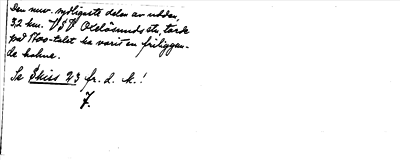 Den nuv. sydligaste delen av udden,
3,2 km. VSV Oxelösunds stn, torde
på 1700-talet ha varit en friliggan-
de holme.
Se Skiss 23 fr. d. k.!
F.